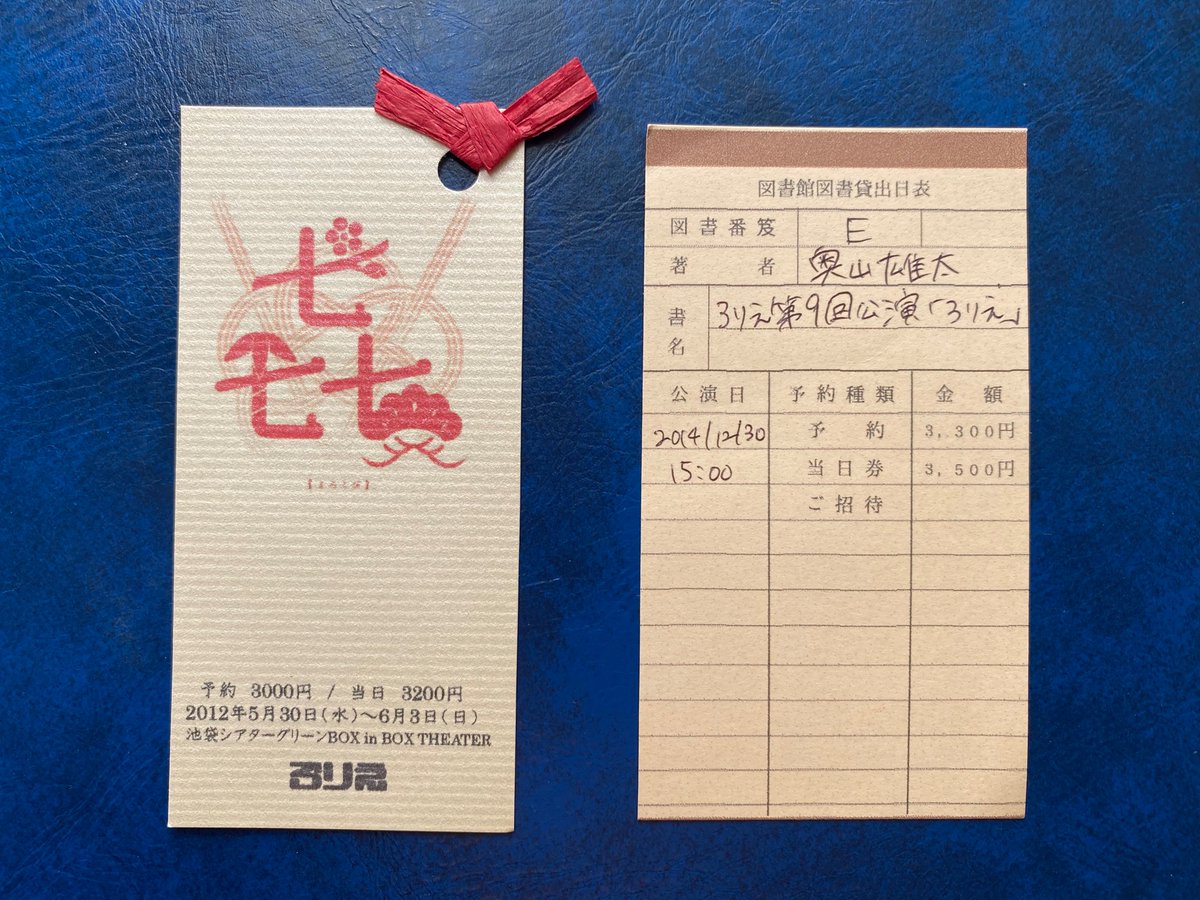 七
七七
予約 3000円 / 当日 3200円
2012年5月30日(水)〜6月3日(日)
池袋シアターグリーンBOX in BOX THEATER
ろりえ
図書館図書貸出日表
図書番笈 E
著者 奥山雄太
書名 ろりえ第9回公演「ろりえ」
公演日 予約種類 金額
2014/12/30 予約 3,300円
15:00 当日券 3,500円
ご招待